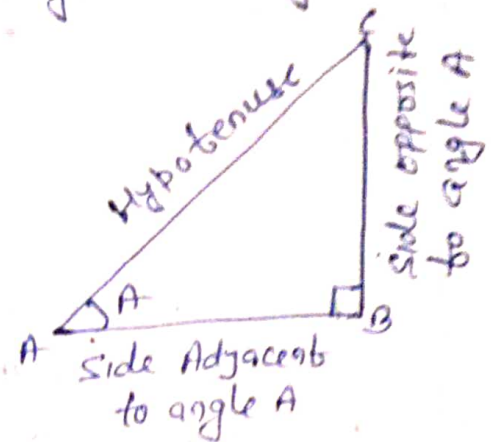 C
Hypotenuse
Side opposite
to angle A
A
A
B
Side Adjacent
to angle A